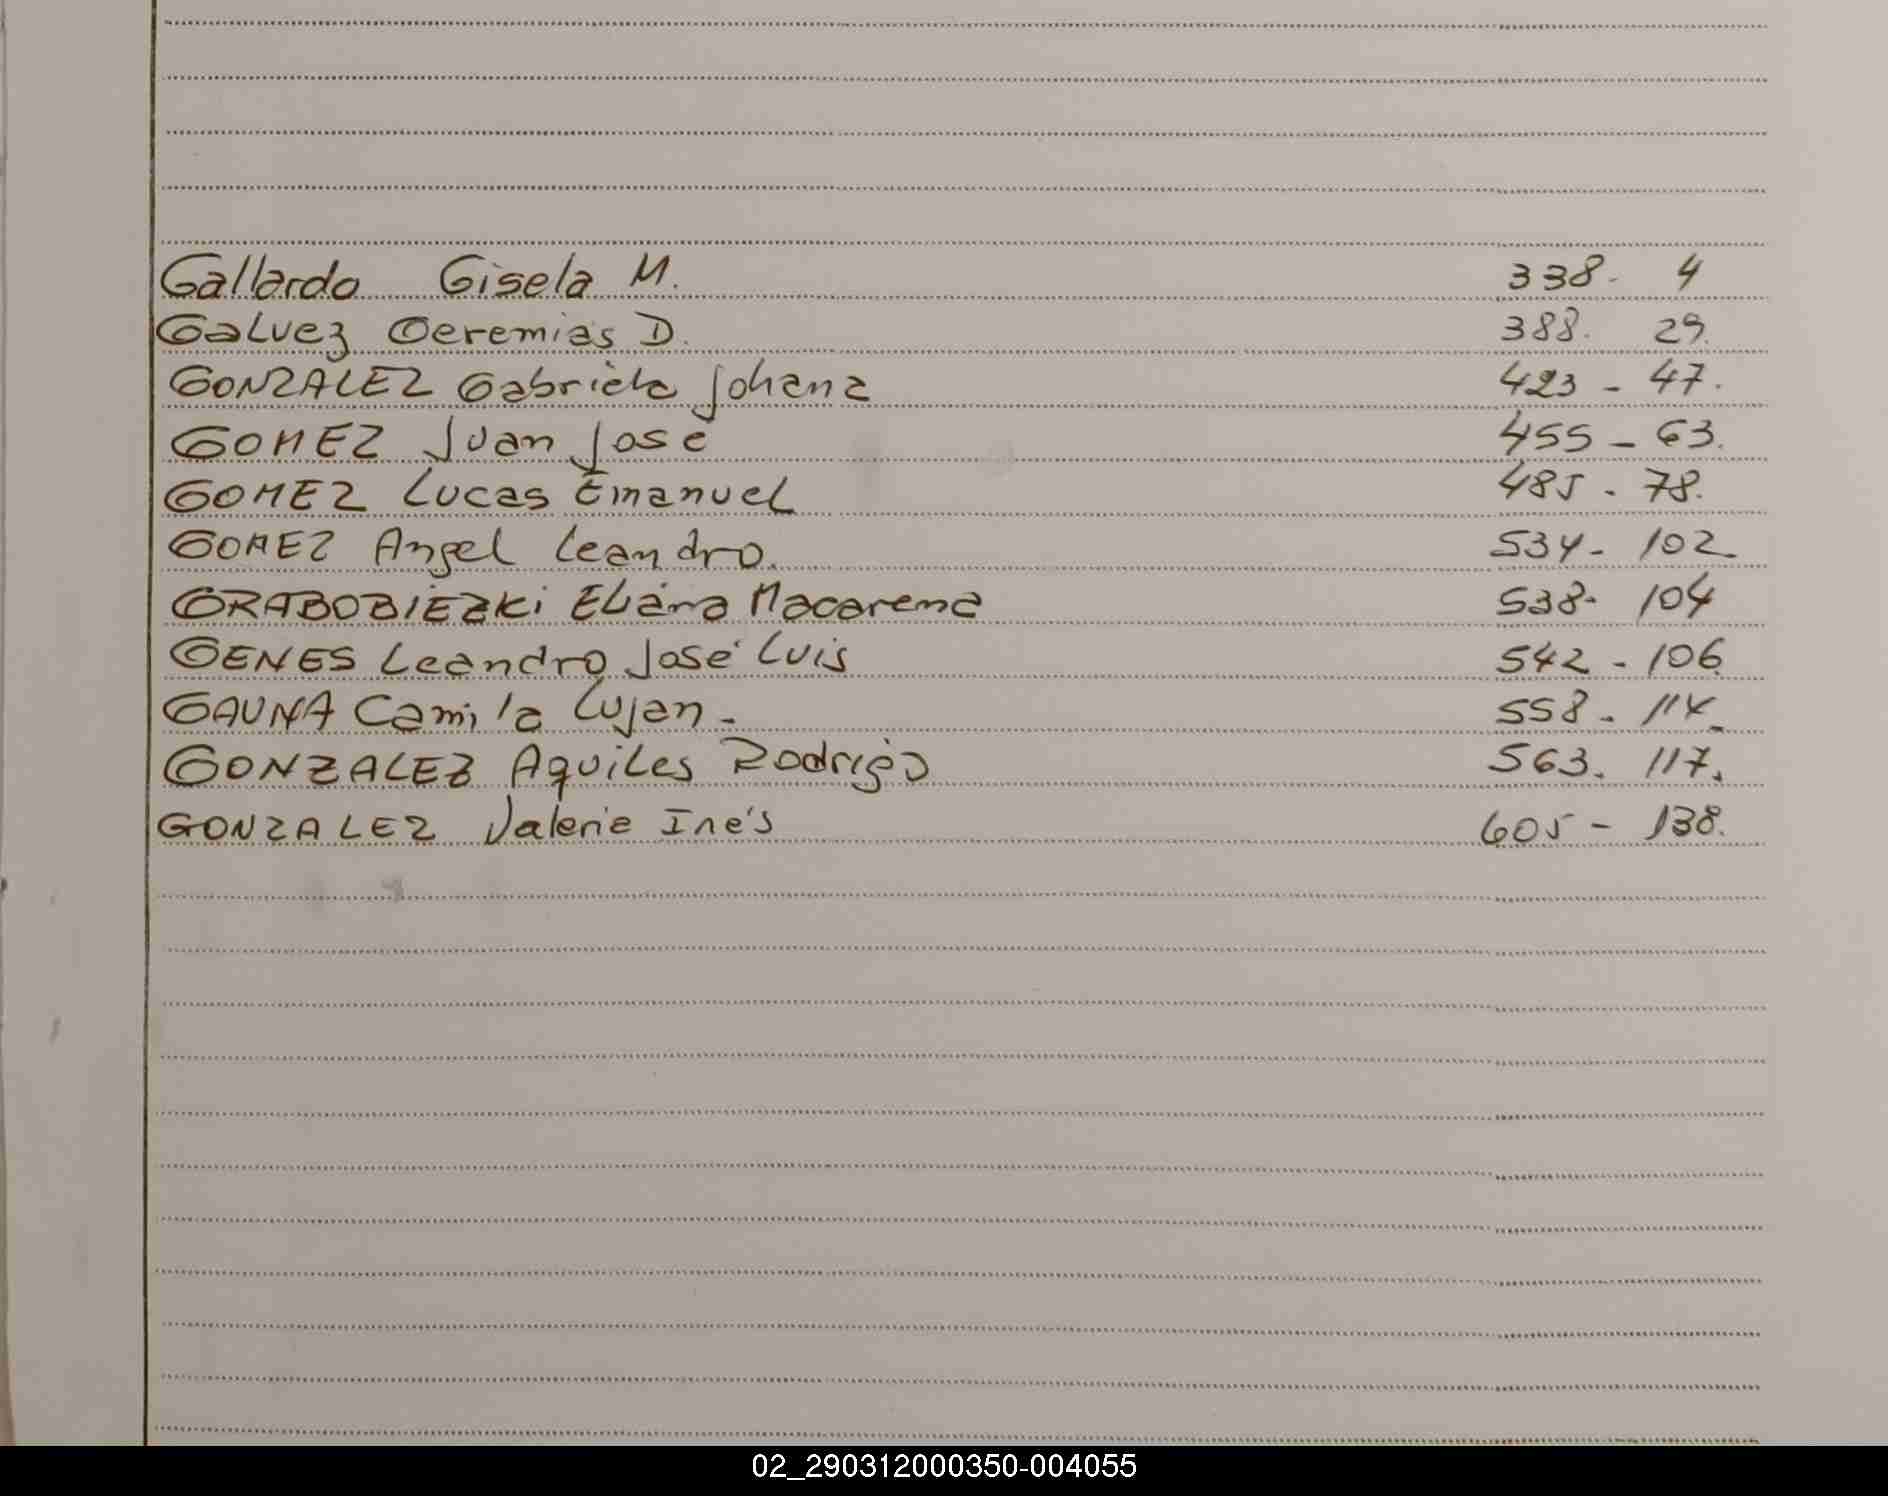 Gallardo Gisela M. 338- 4
Galvez Geremias D. 388. 29.
GONZALEZ Gabriela Johana 423 - 47.
GOMEZ Juan José 455 - 63.
GOMEZ Lucas Emanuel 485 - 78.
GOMEZ Angel Leandro. 534 - 102
GRABOBIEZKi Eliana Macarena 538- 104
GENES Leandro José Luis 542 - 106
GAUNA Camila Lujan - 558 - 114
GONZALEZ Aquiles Rodrigo 563. 117.
GONZALEZ Valeria Inés 605 - 138.
02_290312000350-004055